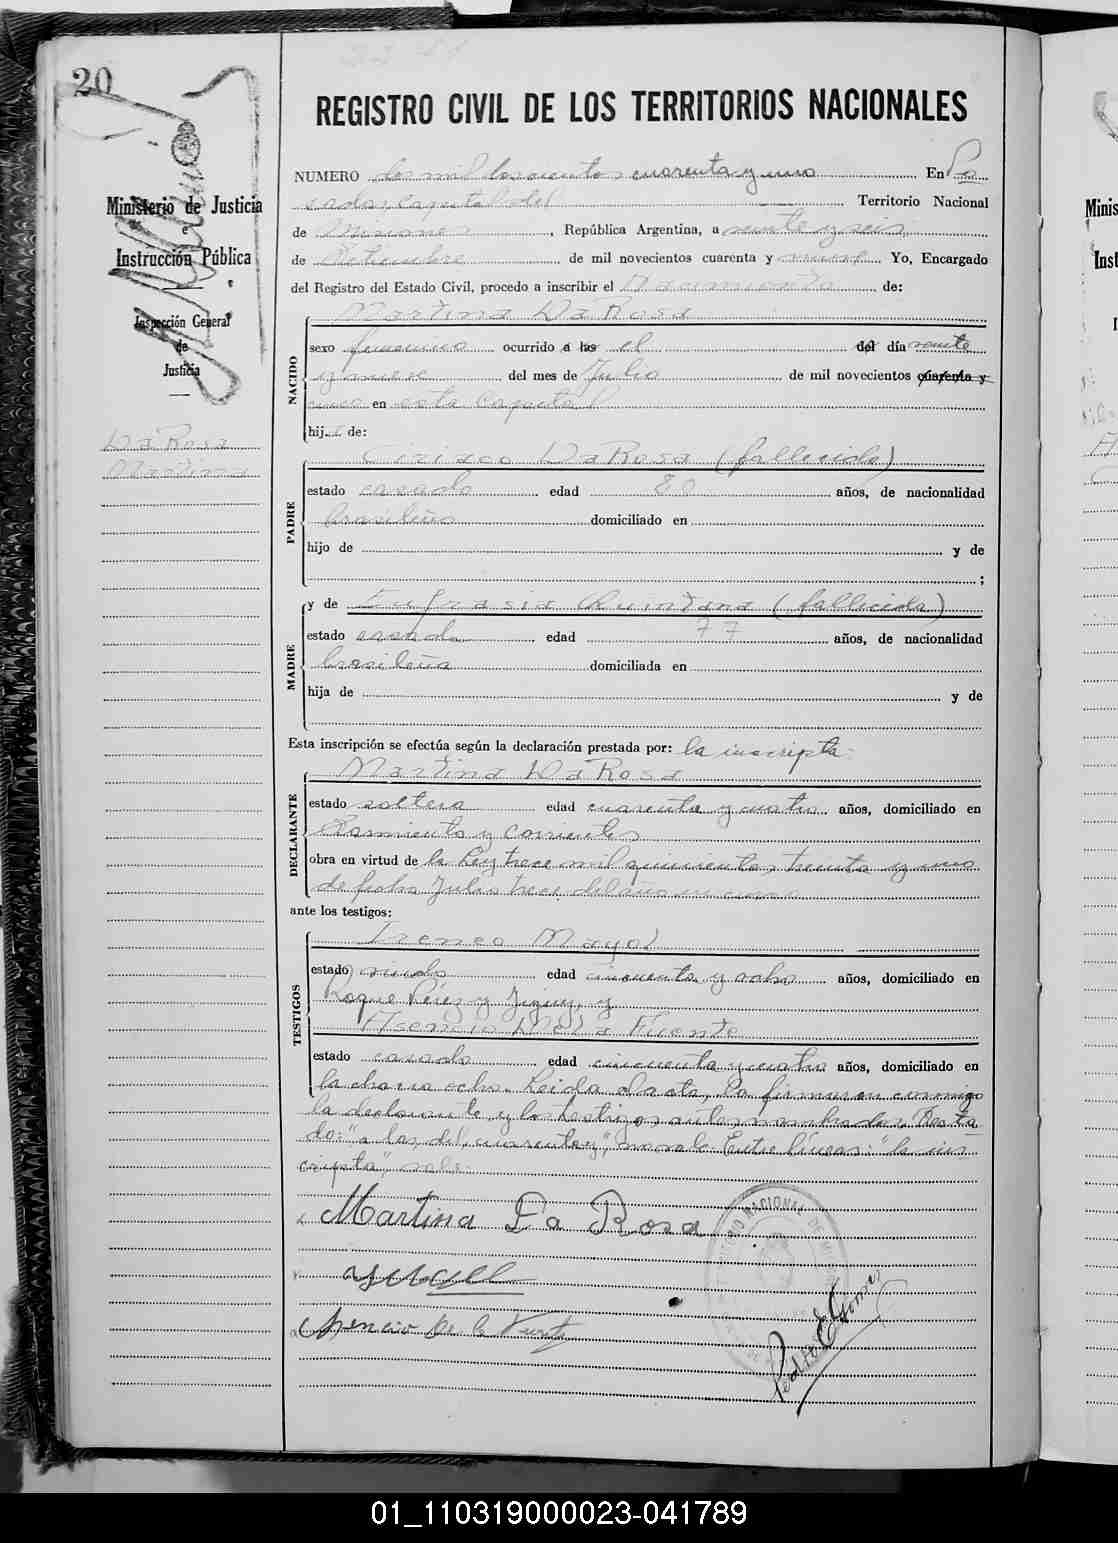 20
REGISTRO CIVIL DE LOS TERRITORIOS NACIONALES
NUMERO dos mil doscientos cuarenta y uno En Po
sadas, Capital del Territorio Nacional
de Misiones, República Argentina, a veinte y seis
de Setiembre de mil novecientos cuarenta y nueve Yo, Encargado
del Registro del Estado Civil, procedo a inscribir el Nacimiento de:
Ministerio de Justicia
e
Instrucción Pública
Inspección General
de
Justicia
Da Rosa
Martina
NACIDO
Martina Da Rosa
sexo femenino ocurrido a las el del día veinte
y nueve del mes de Julio de mil novecientos cuarenta y
cinco en esta Capital
hija de:
PADRE
Da Rosa (fallecido)
estado casado edad 80 años, de nacionalidad
brasileño domiciliado en
hijo de y de
;
MADRE
y de Eufrasia Quintana (fallecida)
estado casada edad 77 años, de nacionalidad
brasileña domiciliada en
hija de y de
Esta inscripción se efectúa según la declaración prestada por: la inscripta:
DECLARANTE
Martina Da Rosa
estado soltera edad cuarenta y cuatro años, domiciliado en
Sarmiento y Corrientes
obra en virtud de la Ley trece mil quinientos treinta y uno
de fecha Julio trece del año en curso
ante los testigos:
TESTIGOS
Ireneo Mayol
estado viudo edad cincuenta y ocho años, domiciliado en
Roque Pérez y Jujuy, y
Asencio De La Fuente
estado casado edad cincuenta y cuatro años, domiciliado en
la chacra ocho. Leida el acta, la firmaron conmigo
la declarante y los testigos antes nombrados. Resta
do: "a las, del, cuarenta y", no vale. Entre líneas: "la ins
cripta", vale.
Martina Da Rosa
Asencio De la Fuente
TERRITORIO NACIONAL DE MISIONES
Pedro E. Gomez
01_110319000023-041789